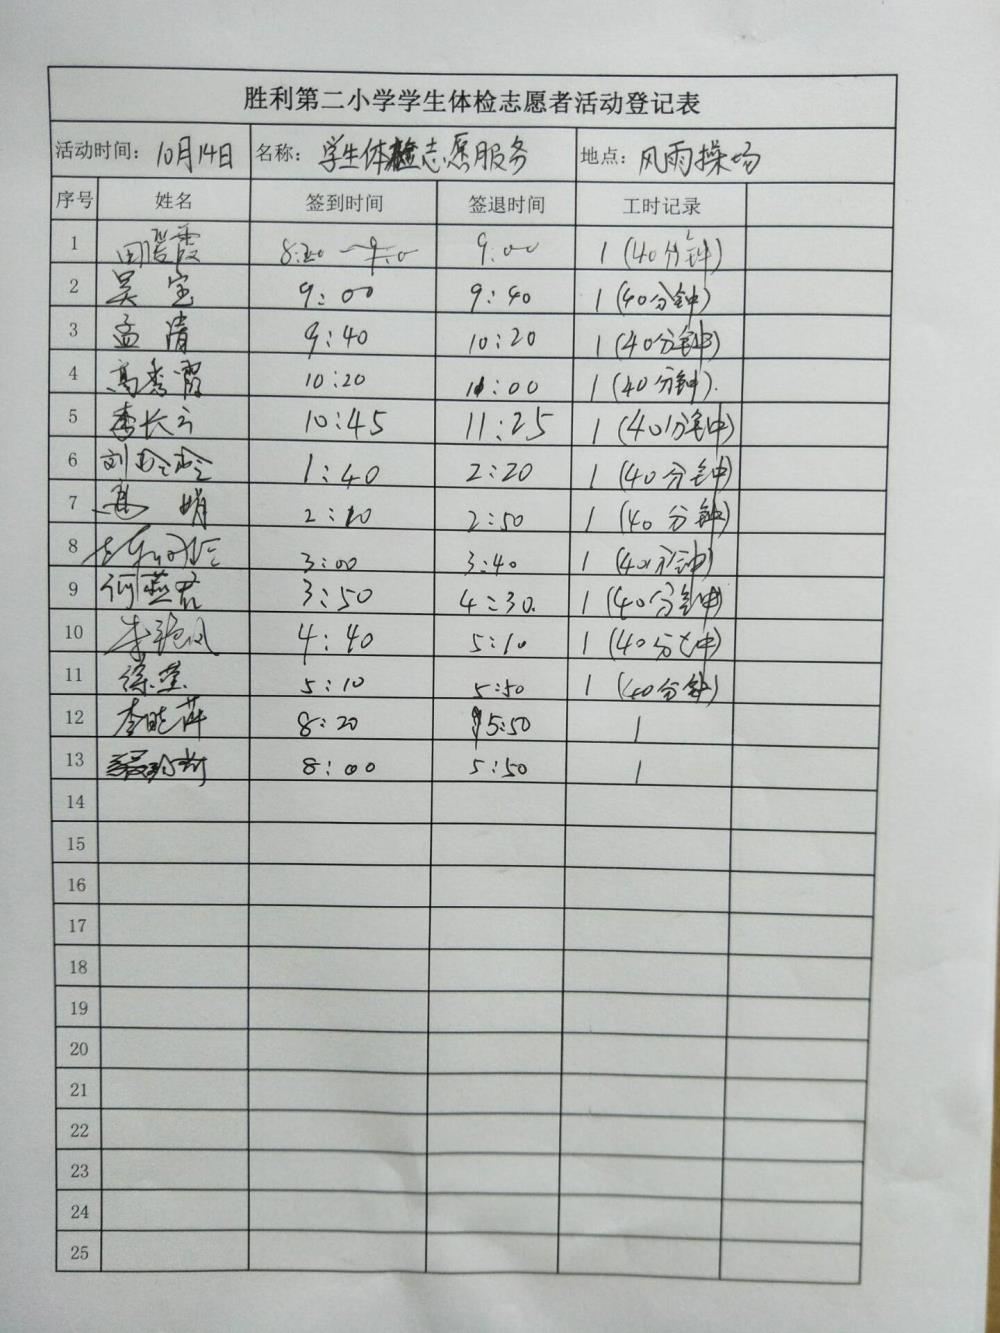 胜利第二小学学生体检志愿者活动登记表
活动时间：10月14日 名称：学生体检志愿服务 地点：风雨操场
序号 姓名 签到时间 签退时间 工时记录
1 田 霞 8:20 9:00 1 (40分钟)
2 吴宝 9:00 9:40 1 (40分钟)
3 孟清 9:40 10:20 1 (40分钟)
4 高秀霞 10:20 11:00 1 (40分钟).
5 李长云 10:45 11:25 1 (40分钟)
6 刘玲玲 1:40 2:20 1 (40分钟)
7 娟 2:10 2:50 1 (40分钟)
8 3:00 3:40 1 (40分钟)
9 何燕君 3:50 4:30. 1 (40分钟)
10 李艳凤 4:40 5:10 1 (40分钟)
11 徐莹 5:10 5:50 1 (40分钟)
12 李晓萍 8:20 5:50 1
13 8:00 5:50 1
14
15
16
17
18
19
20
21
22
23
24
25